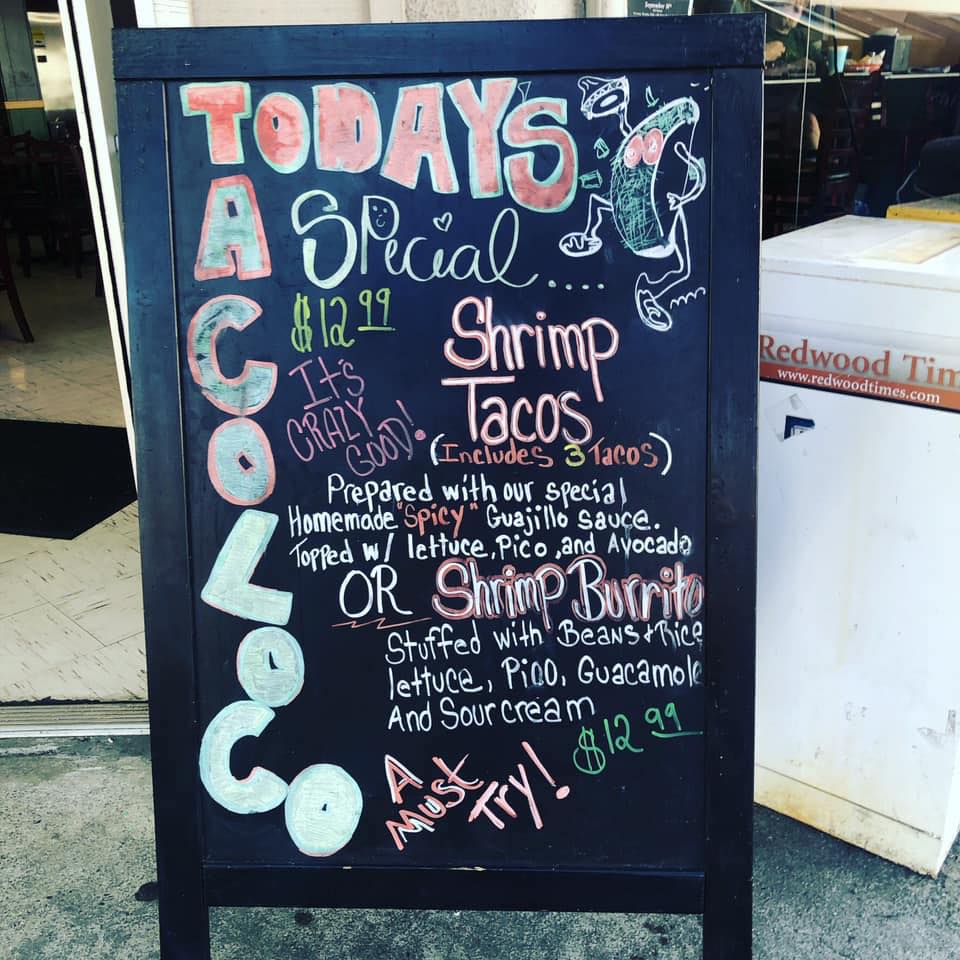 September 14th
TODAYS
TACO LOCO
Special.....
$12.99
Shrimp
Tacos
It's
CRAZY
GOOD!
(Includes 3 Tacos)
Prepared with our special
Homemade "Spicy" Guajillo sauce.
Topped w/ lettuce, Pico, and Avocado
OR Shrimp Burrito
Stuffed with Beans + Rice
lettuce, Pico, Guacamole
And Sour cream
$12.99
A
Must
Try!
Redwood Tim
www.redwoodtimes.com